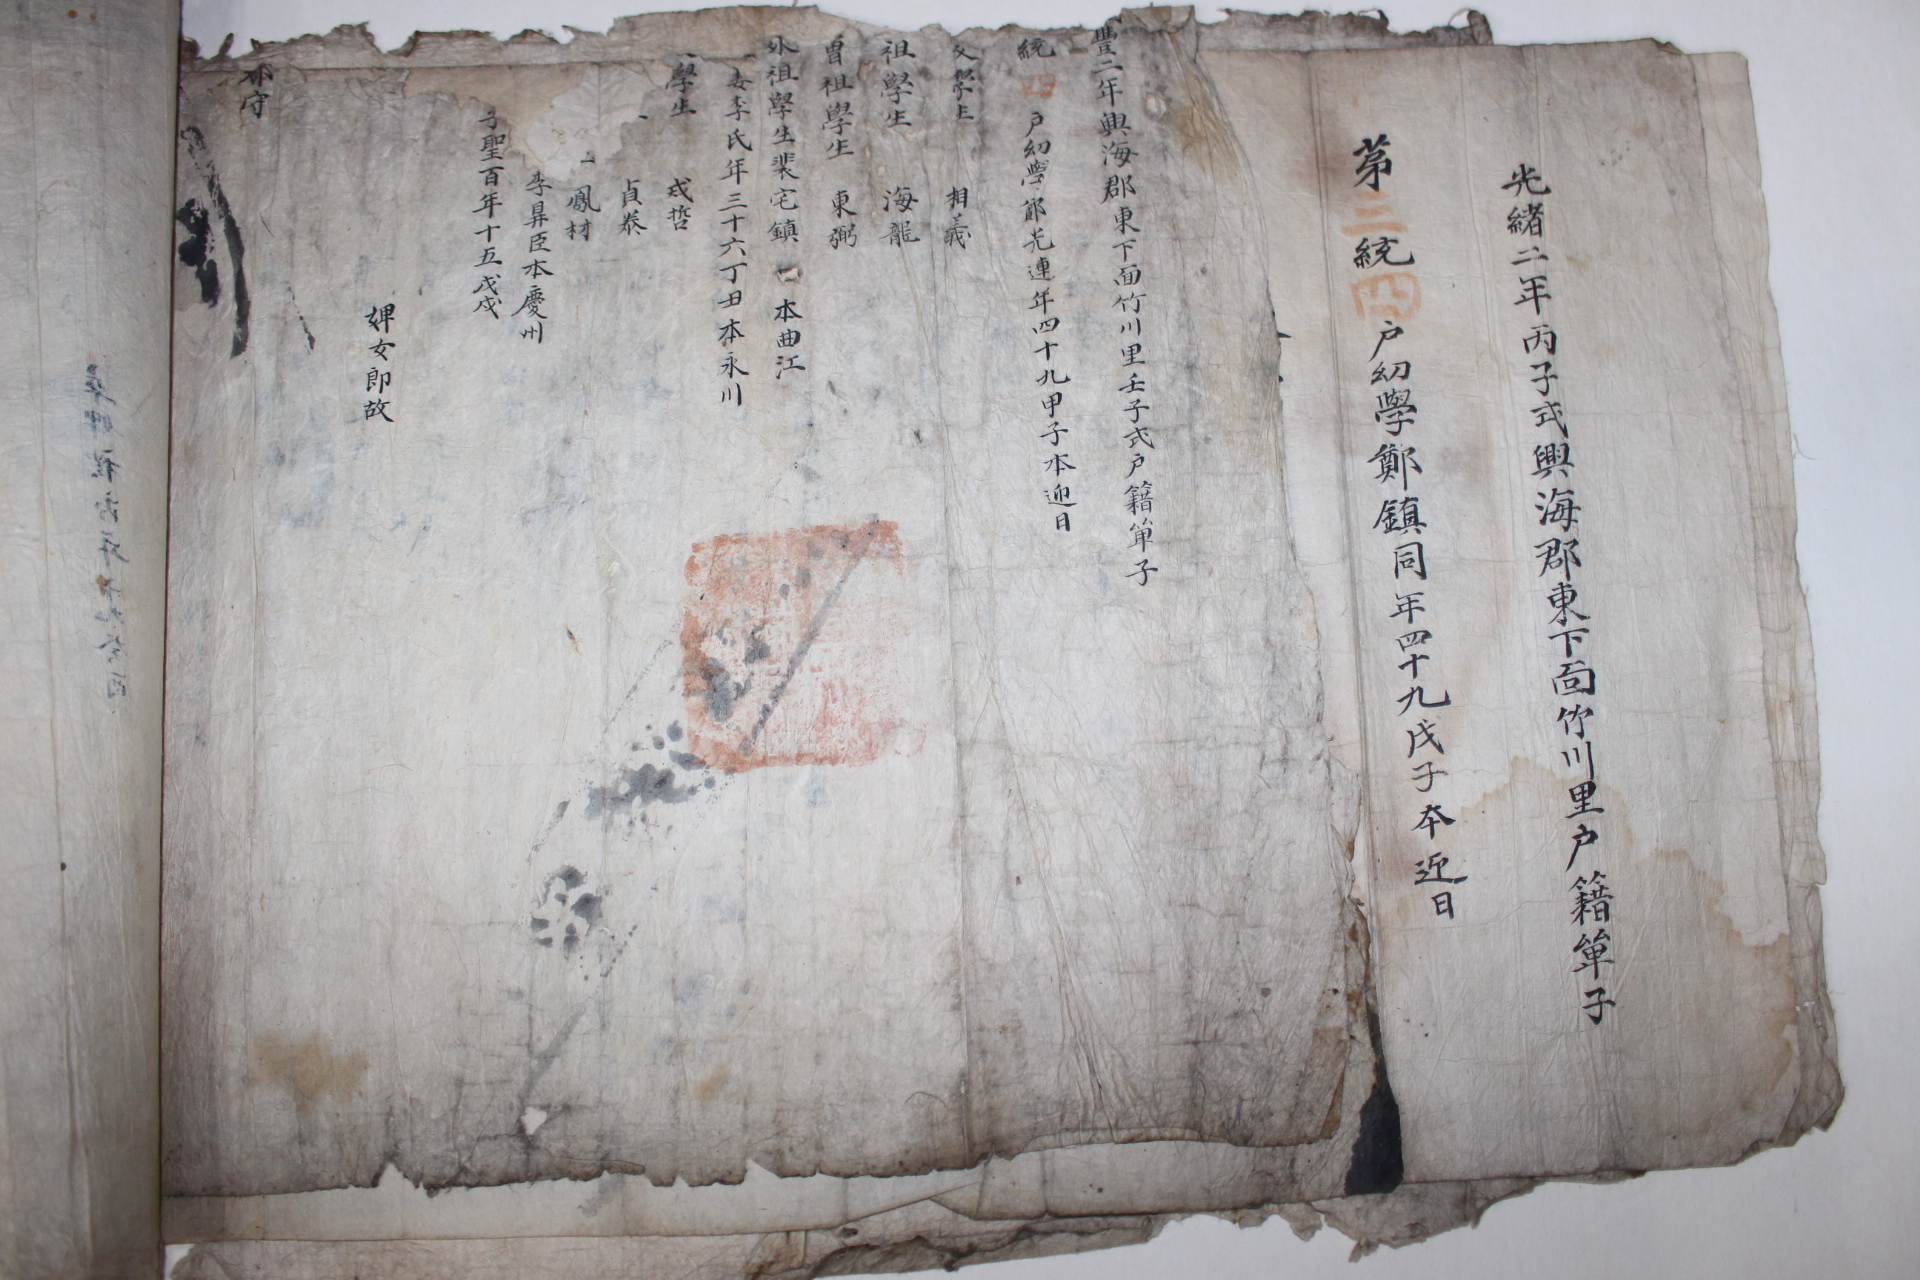 光緖二年丙子式興海郡東下面竹川里户籍單子
第三統四户幼學鄭鎭同年四十九戊子本迎日
豐二年興海郡東下面竹川里壬子式户籍單子
統四户幼學鄭光連年四十九甲子本迎日
父學生相義
祖學生海龍
曾祖學生東弼
外祖學生裴宅鎭本曲江
妻李氏年三十六丁丑本永川
學生戎哲
貞泰
鳳材
李昇臣本慶州
子聖百年十五戊戌
婢女郎故
守